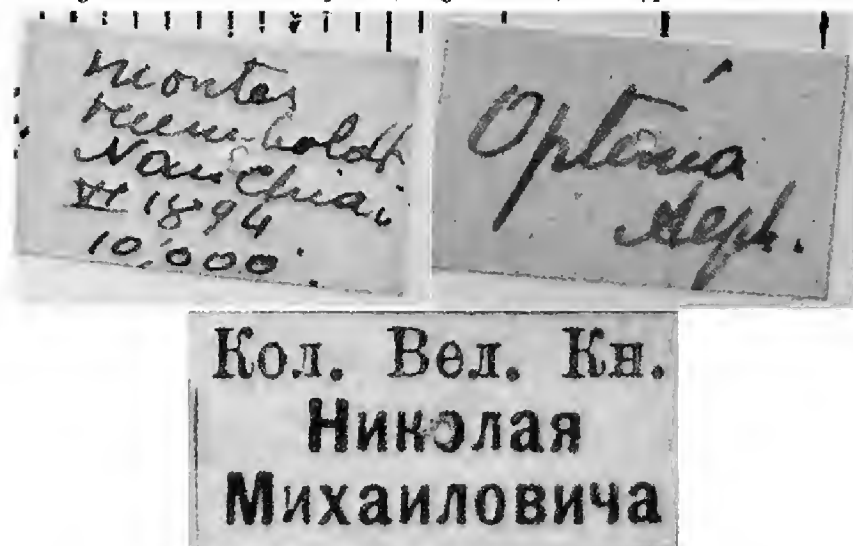 montes
Humboldt
Nan Chan
VI 1894
10'000'.
Optima
Alph.
Кол. Вел. Кн.
Николая
Михаиловича